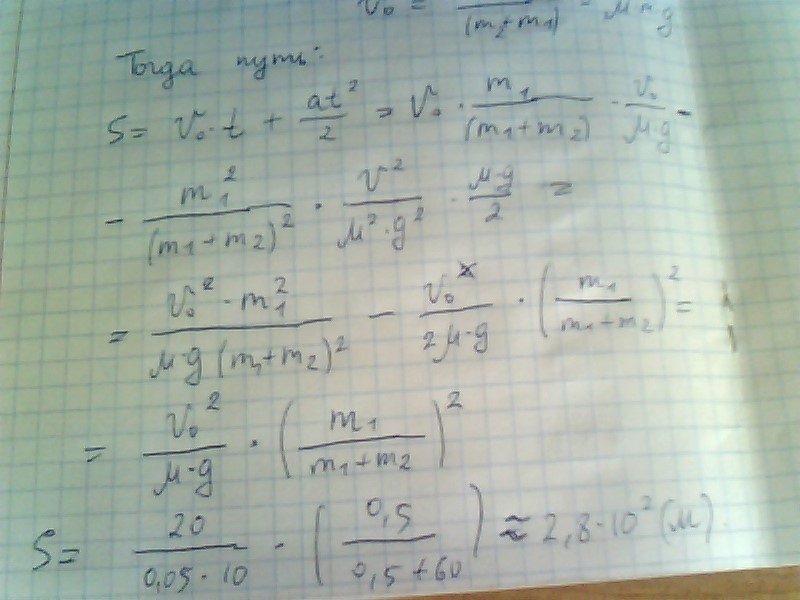 V₀ = /(m₂+m₁) - μ g
Тогда путь:
S = V₀·t + at²/2 = V₀ · m₁/(m₁+m₂) · V₀/μg -
- m₁²/(m₁+m₂)² · V²/μ²·g² · μ·g/2 =
= V₀²·m₁²/μ·g(m₁+m₂)² - V₀²/2μ·g · (m₁/m₁+m₂)² =
= V₀²/μ·g · (m₁/m₁+m₂)²
S = 20/0,05·10 · (0,5/0,5+60) ≈ 2,8·10²(м).